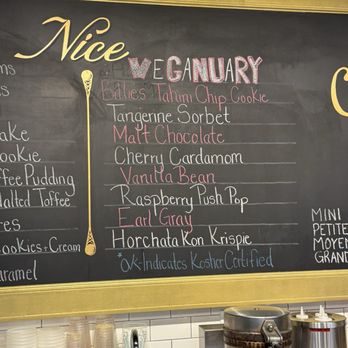 Nice
VEGANUARY
Billies' Tahini Chip Cookie
Tangerine Sorbet
Malt Chocolate
Cherry Cardamom
Vanilla Bean
Raspberry Push Pop
Earl Gray
Horchata Kon Krispie
*OVK-Indicates Kosher Certified
ookie
ffee Pudding
alted Toffee
ookies + Cream
aramel
MINI
PETITE
MOYEN
GRAND